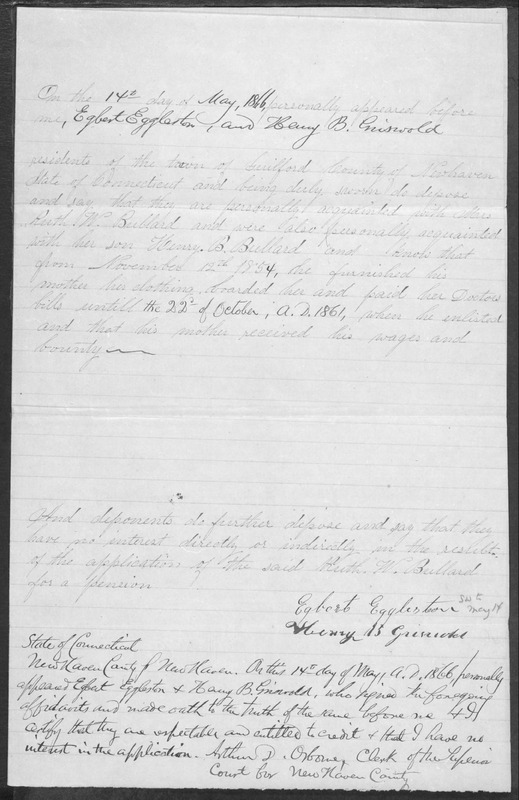 On the 14th day of May, 1866, personally appeared before
me, Egbert Eggleston, and Henry B. Griswold
residents of the town of Guilford County of Newhaven
State of Connecticut and being duly sworn do depose
and say that they are personally acquainted with Mrs
Ruth W. Bullard and were also personally acquainted
with her son Henry B. Bullard and know that
from November 12th 1854, he furnished his
mother her clothing, boarded her and paid her Doctors
bills untill the 22d of October, A.D. 1861, when he enlisted
and that his mother received his wages and
bounty
And deponents do further depose and say that they
have no interest directly or indirectly in the results
of the application of the said Ruth W. Bullard
for a pension
Egbert Eggleston
May 14
Henry B Griswold
State of Connecticut
New Haven County of New Haven. On this 14th day of May, A.D. 1866 personally
appeared Egbert Eggleston & Henry B. Griswold, who signed the foregoing
affidavits and made oath to the truth of the same before me & I
certify that they are respectable and entitled to credit & that I have no
interest in the application. Arthur D. Osborne, Clerk of the Superior
Court for New Haven County